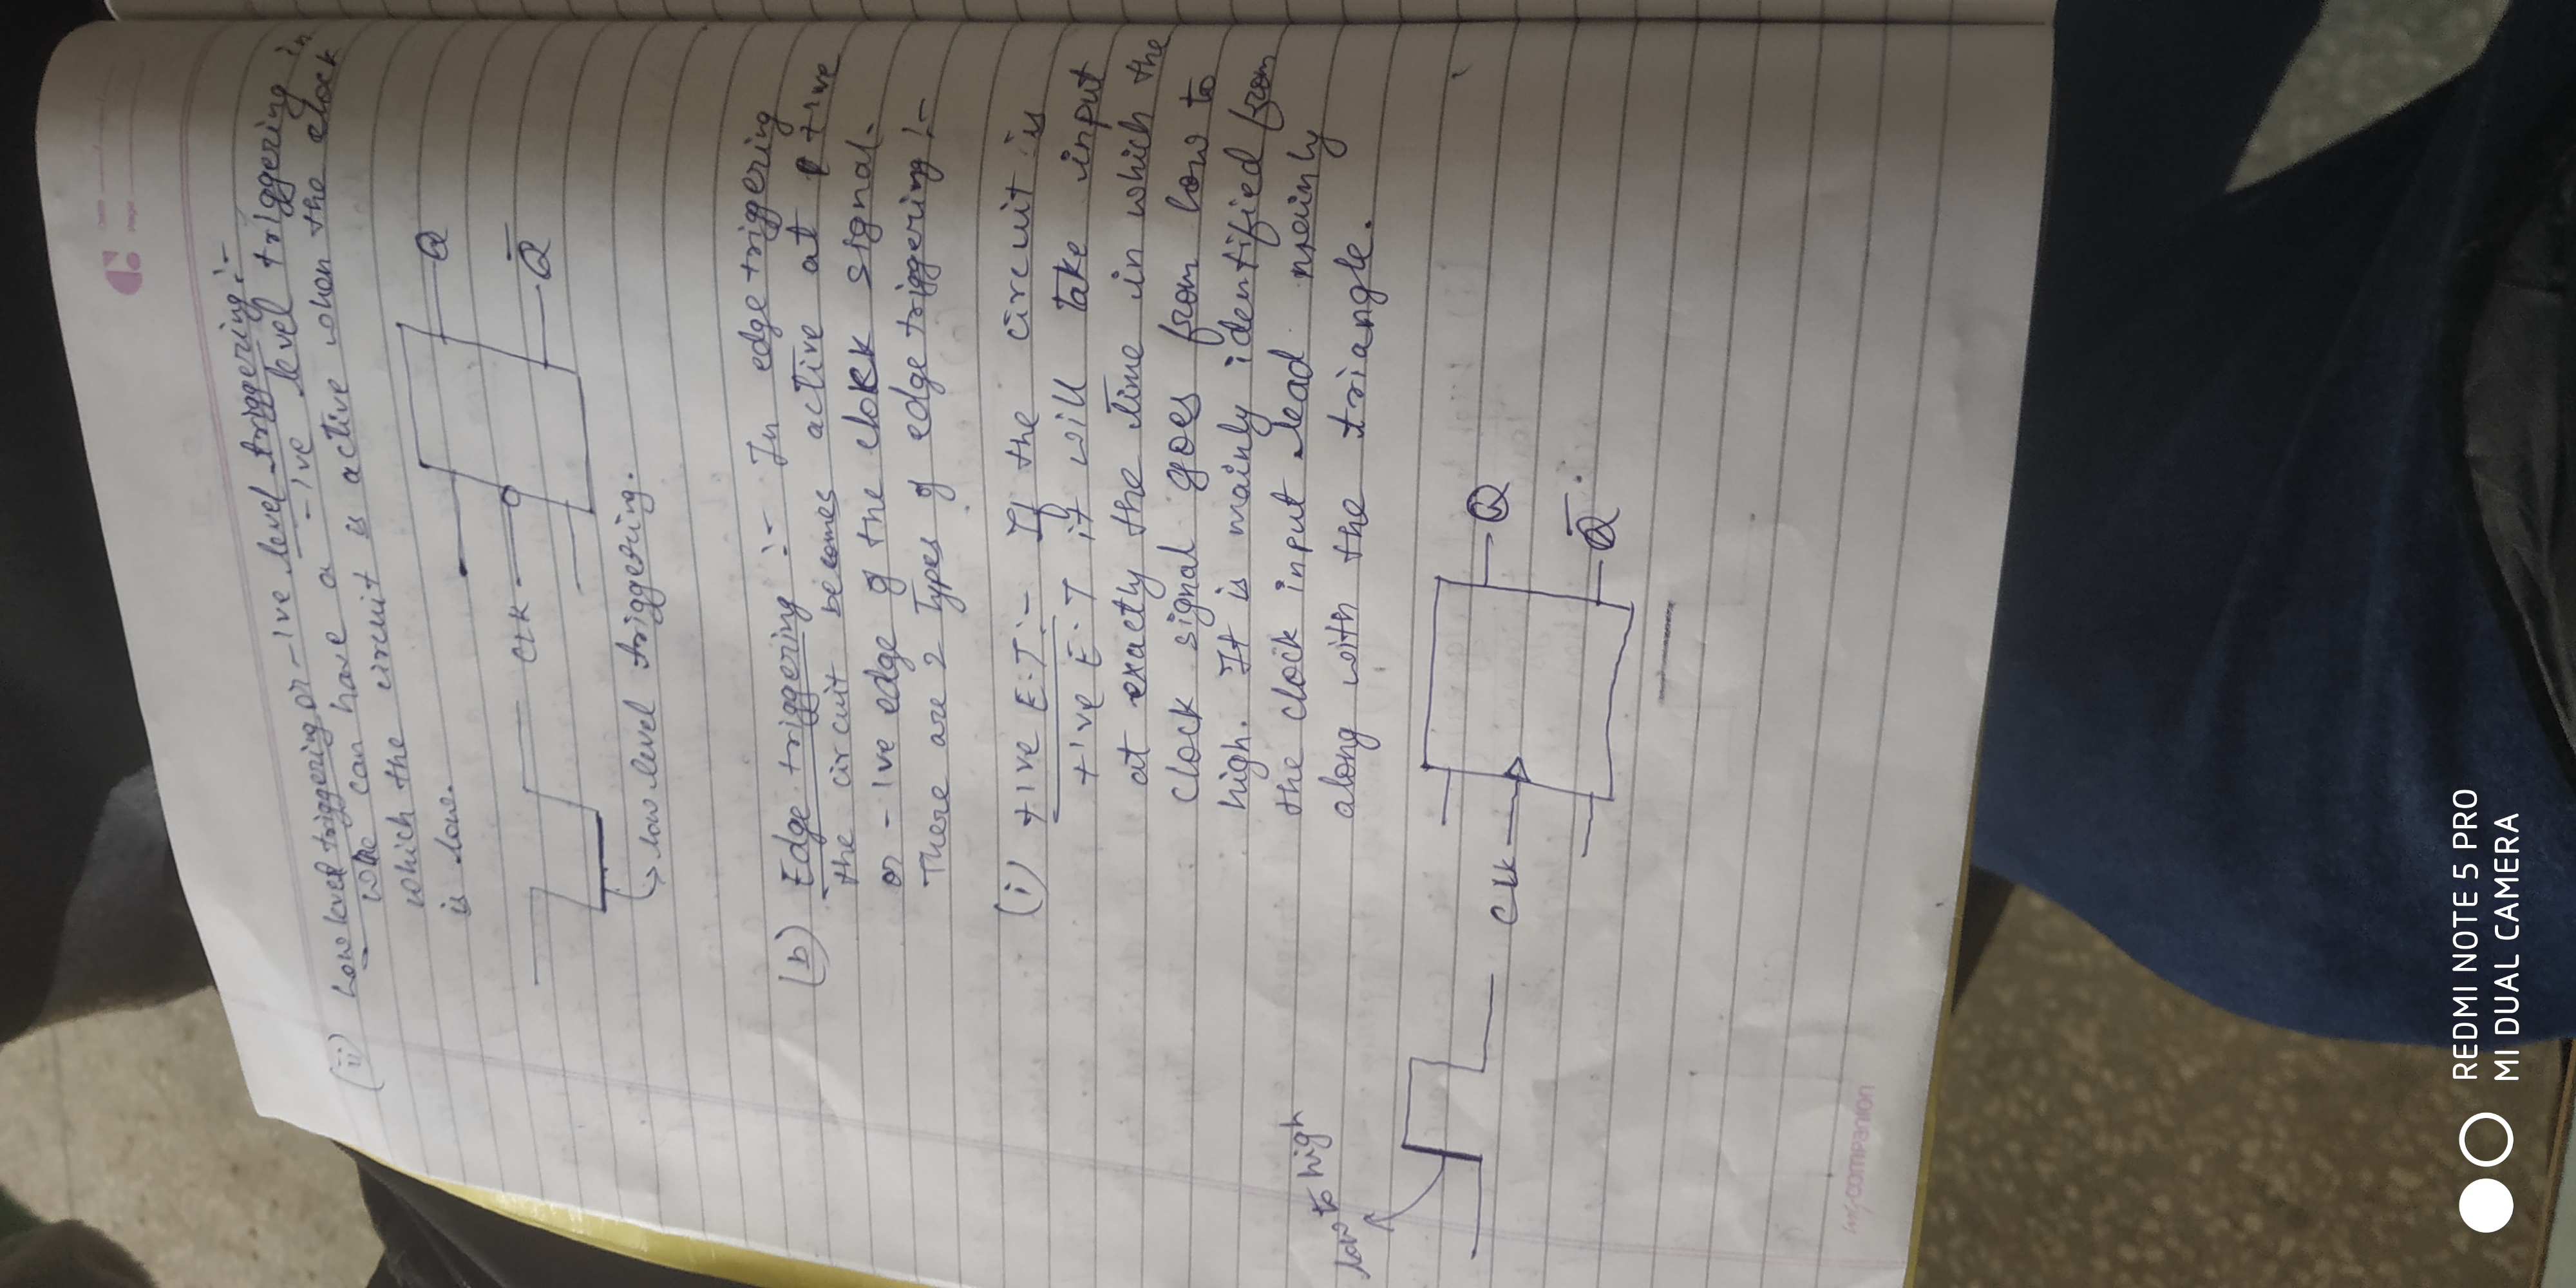 (ii) Low level triggering or -ive level triggering:-
We can have a -ive level triggering in
which the circuit is active when the clock
is low.
Q
CLK
Q̅
low level triggering.
(b) Edge triggering :- In edge triggering
the circuit becomes active at +ive
or -ive edge of the clock signal.
There are 2 Types of edge triggering :-
(i) +ive E.T :- If the circuit is
+ive E.T it will Take input
at exactly the time in which the
clock signal goes from low to
high. It is mainly identified from
the clock input lead mainly
along with the triangle.
low to high
Q
CLK
Q̅
my companion
REDMI NOTE 5 PRO
MI DUAL CAMERA